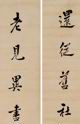 還從舊社
老見異書